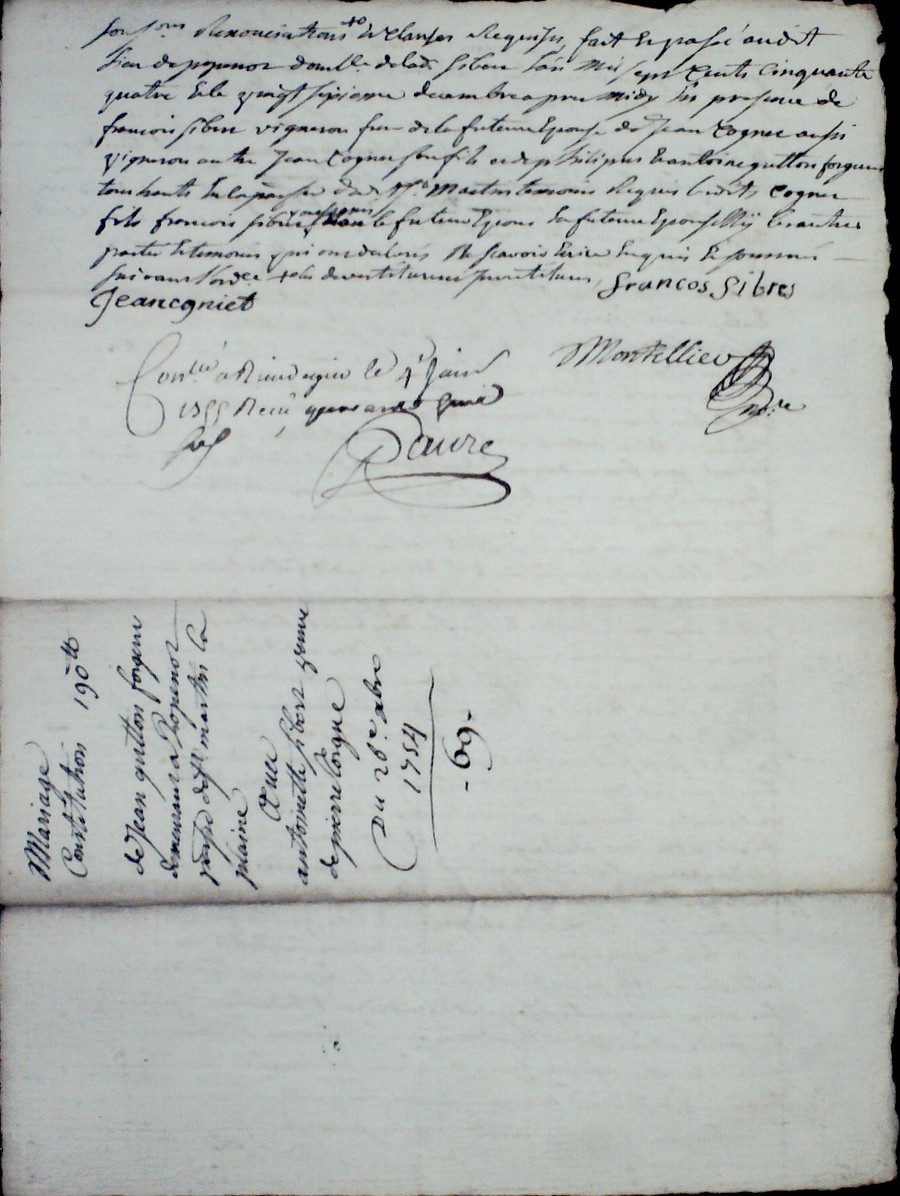 Renonciations et Clauses Requises, fait et passé audit
Lieu de poyenor de lad. Siber L'an Mil sept Cents Cinquante
quatre et le vingt sixieme decembre apres midy En presence de
françois siber vigneron frere de la future Epouse de Jean Cognet aussi
vigneron autre Jean Cognet son fils et de philippes Et antoine guitton forgeurs
tous de la paroisse de St Martin temoins Requis Led. Cognet
fils françois siber le futur Epoux La future Epouse Ny les autres
parties et temoins qui ont declaré Ne scavoir Ecrire Enquis Et sommés
suivant l'ord.ce
francos Sibres
Jeancgniet
Con.llé a Rivedegier le 4.e Janv
1755 Receu quarante
Montellier
no.re
Faure
Mariage
Constitution 190 tt
de Jean guitton forgeur
demeurant a Poyenor
parsse de St martin la
plaine
Avec
antoinette siber veuve
de pierre Cogne
Du 26.e xbre
1754
- 69 -